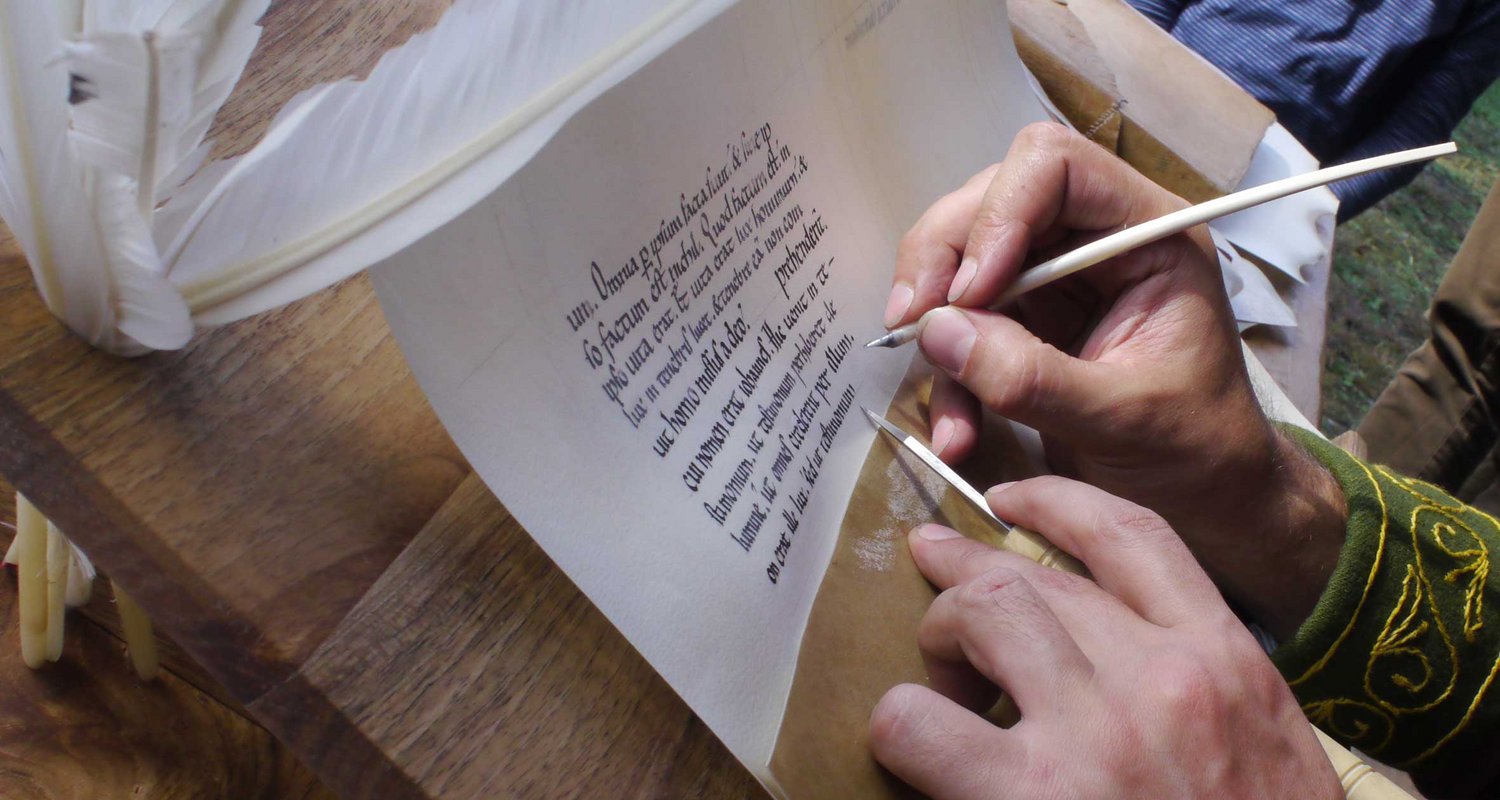 um. Omnia ꝑ ipsum facta sunt, & sine ip
so factum est nichil. Quod factum est, in
ipso uita erat. Et uita erat lux hominum, &
lux in tenebris lucet, & tenebre eā non com
uit homo missus a deo, prehenderunt.
cui nomen erat iohannes. Hic uenit in te-
stimonium, ut testimonium perhiberet de
lumine, ut omnes crederent per illum.
on erat ille lux, sed ut testimonium